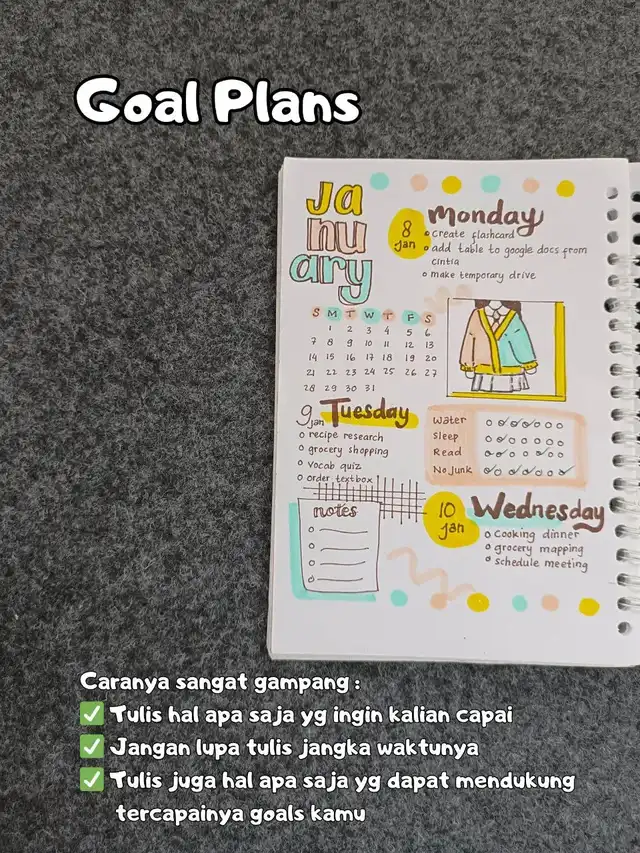 Goal Plans
Ja
nu
ary
8
Jan
Monday
create flashcard
add table to google docs from
cintia
make temporary drive
S M T W T F S
1 2 3 4 5 6
7 8 9 10 11 12 13
14 15 16 17 18 19 20
21 22 23 24 25 26 27
28 29 30 31
9
Jan
Tuesday
recipe research
grocery shopping
vocab quiz
order textbox
Water
Sleep
Read
No Junk
notes
10
Jan
Wednesday
Cooking dinner
grocery mapping
schedule meeting
Caranya sangat gampang :
✅ Tulis hal apa saja yg ingin kalian capai
✅ Jangan lupa tulis jangka waktunya
✅ Tulis juga hal apa saja yg dapat mendukung
tercapainya goals kamu